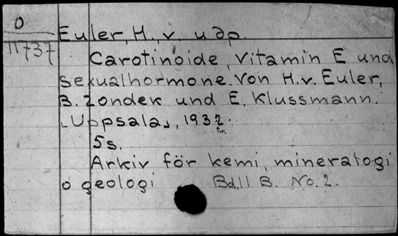 O
11737
Euler, H. v. u dp.
Carotinoide, Vitamin E und
Sexualhormone. Von H.v. Euler,
B. Zondek und E. Klussmann.
[Uppsala], 1932.
5s.
Arkiv för kemi, mineralogi
o geologi Bd.11 B. No. 2.